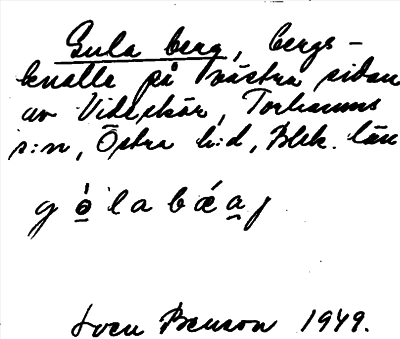 Gula berg, bergs-
knalle på västra sidan
av Videskär, Torhamns
s:n, Östra h:d, Blek. län
g ə̱́ l a b ǽ a̱ j
Sven Benson 1949.